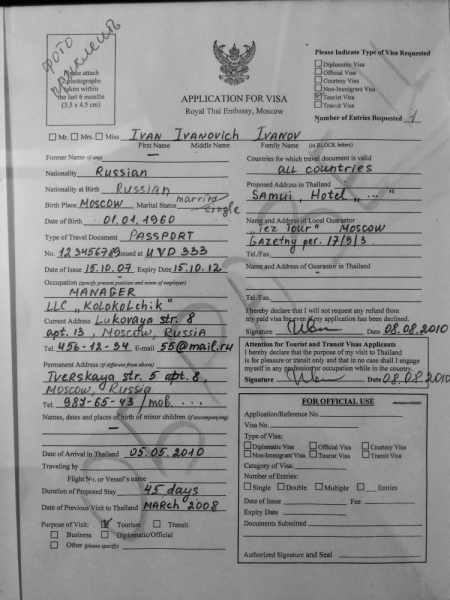 ФОТО
приклеить
Please attach
photographs
taken within
the last 6 months
(3.5 x 4.5 cm)
APPLICATION FOR VISA
Royal Thai Embassy, Moscow
Please Indicate Type of Visa Requested
Diplomatic Visa
Official Visa
Courtesy Visa
Non-Immigrant Visa
Tourist Visa
Transit Visa
Number of Entries Requested 1
Mr. Mrs. Miss IVAN IVANOVICH IVANOV
First Name Middle Name Family Name (in BLOCK letters)
Former Name (if any) —
Nationality Russian
Nationality at Birth Russian
Birth Place MOSCOW Marital Status married
single
Date of Birth 01.01.1960
Type of Travel Document PASSPORT
No. 123456789 Issued at UVD 333
Date of Issue 15.10.07 Expiry Date 15.10.12
Occupation (specify present position and name of employer)
MANAGER
LLC "KoLoKoLchik"
Current Address Lukovaya str. 8
apt. 13, Moscow, Russia
Tel. 456-12-34 E-mail 55@mail.ru
Permanent Address (if different from above)
Tverskaya str. 5 apt. 8,
Moscow, Russia
Tel. 987-65-43 / mob. ...
Names, dates and places of birth of minor children (if accompanying)
—
Date of Arrival in Thailand 05.05.2010
Traveling by
Flight No. or Vessel's name
Duration of Proposed Stay 45 days
Date of Previous Visit to Thailand MARCH 2008
Purpose of Visit: Tourism Transit
Business Diplomatic/Official
Other (please specify)
Countries for which travel document is valid
ALL COUNTRIES
Proposed Address in Thailand
SAMUI, Hotel "..."
Name and Address of Local Guarantor
"Tez Tour" MOSCOW
GAZETNY per. 17/9/3
Tel./Fax.
Name and Address of Guarantor in Thailand
Tel./Fax.
I hereby declare that I will not request any refund from
my paid visa fee even if my application has been declined.
Signature Date 08.08.2010
Attention for Tourist and Transit Visas Applicants
I hereby declare that the purpose of my visit to Thailand
is for pleasure or transit only and that in no case shall I engage
myself in any profession or occupation while in the country.
Signature Date 08.08.2010
FOR OFFICIAL USE
Application/Reference No.
Visa No.
Type of Visa:
Diplomatic Visa Official Visa Courtesy Visa
Non-Immigrant Visa Tourist Visa Transit Visa
Category of Visa:
Number of Entries:
Single Double Multiple Entries
Date of Issue Fee
Expiry Date
Documents Submitted
Authorized Signature and Seal
ОБРАЗЕЦ